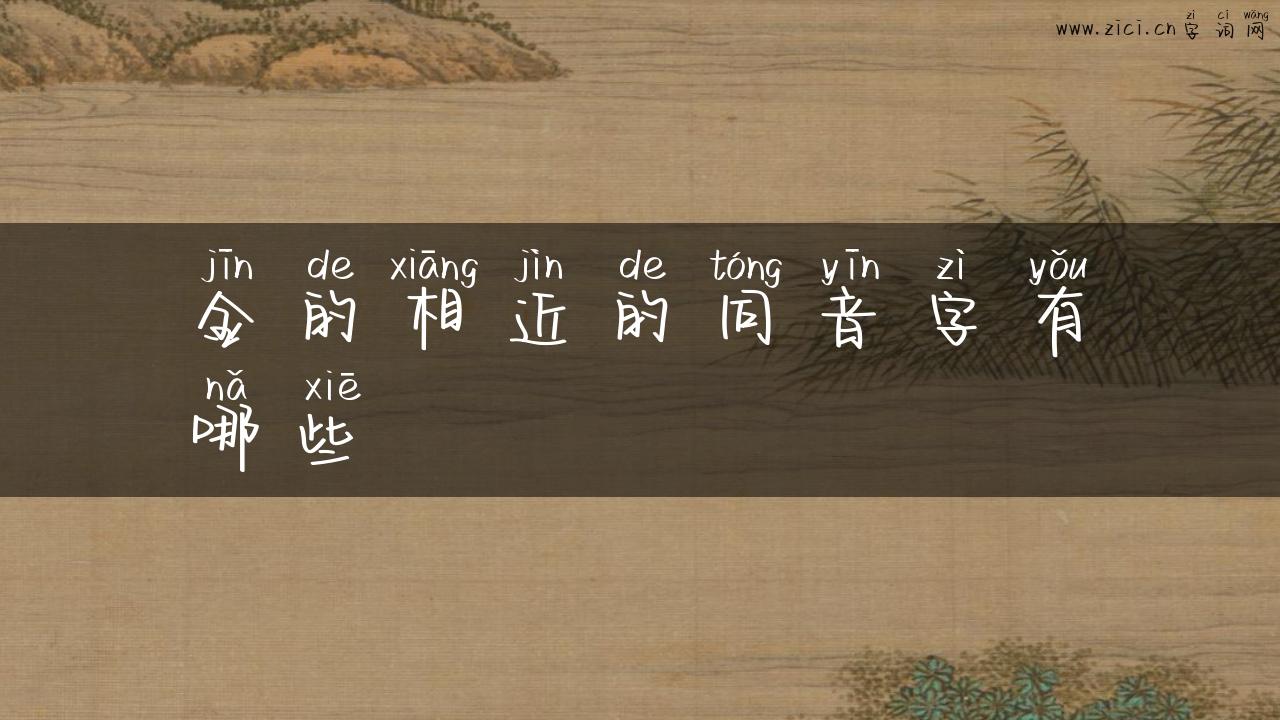 www.zici.cn zì cí wǎng
字词网
jīn de xiāng jìn de tóng yīn zì yǒu
金的相近的同音字有
nǎ xiē
哪些